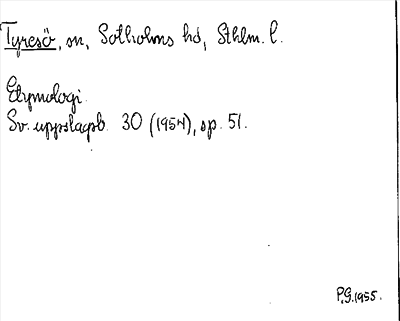 Tyresö, sn, Sotholms hd, Sthlm. l.
Etymologi.
Sv. uppslagsb. 30 (1954), sp. 51.
P.G. 1955.